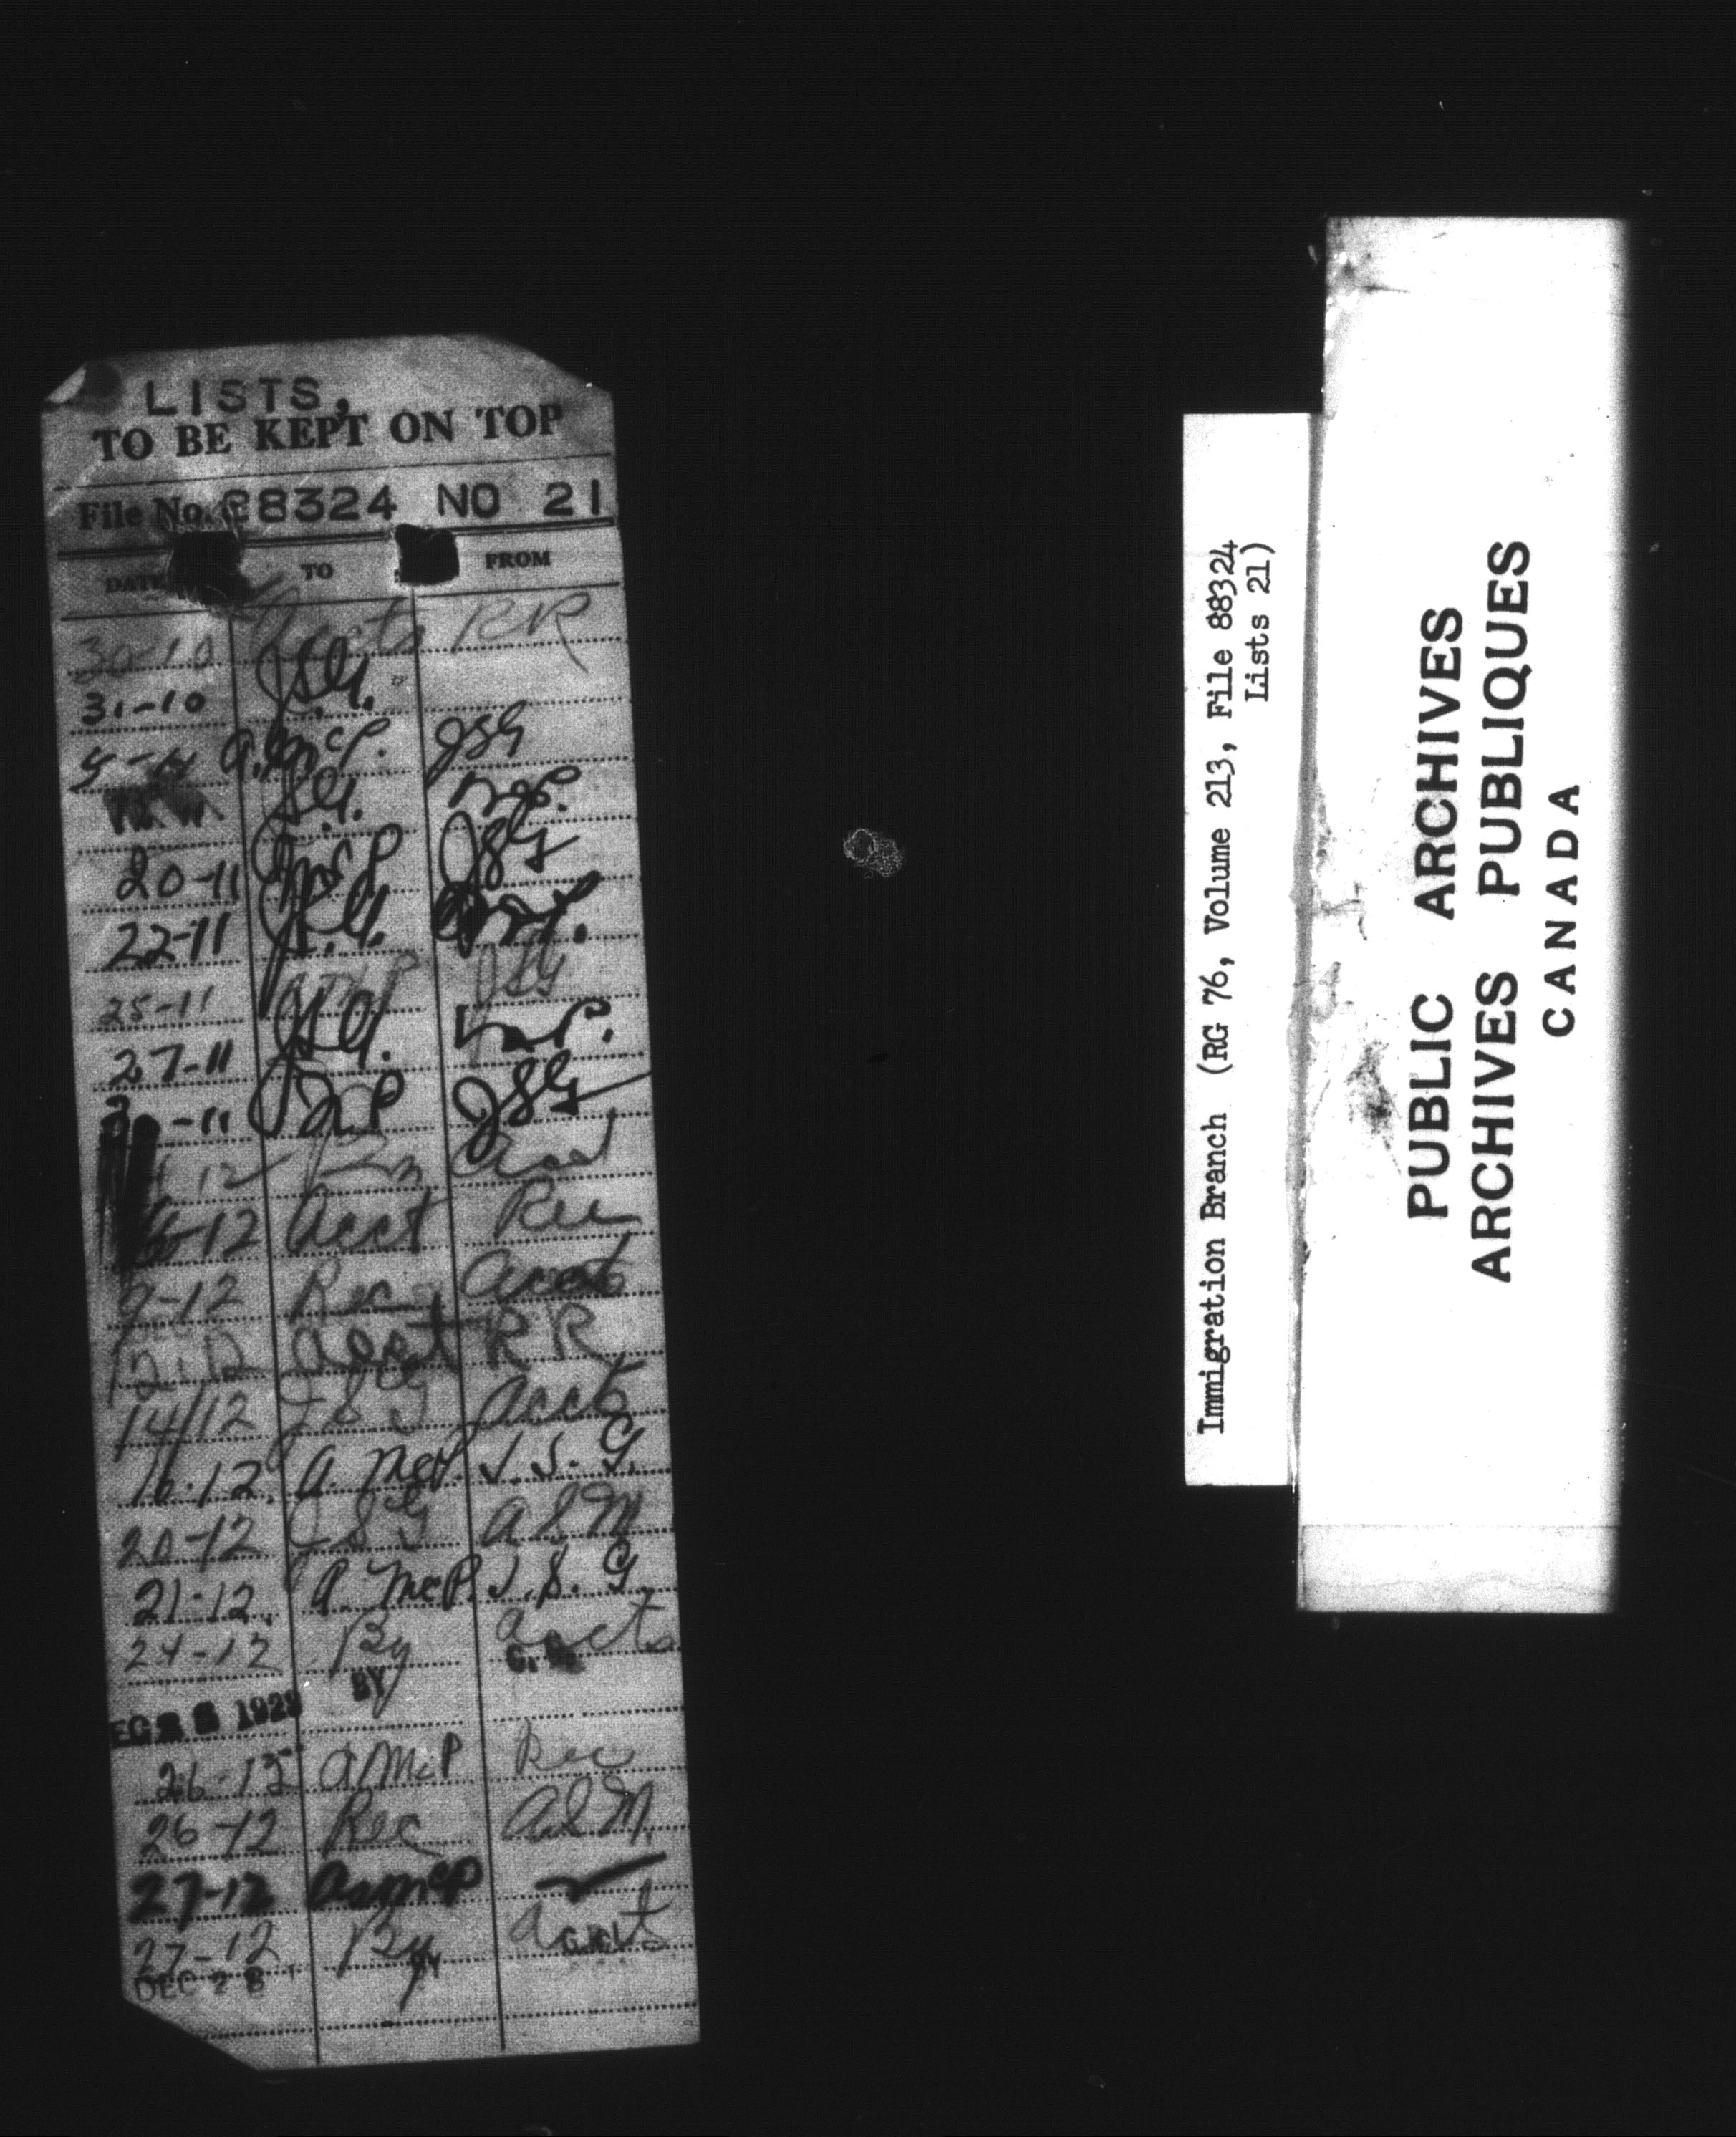 LISTS,
TO BE KEPT ON TOP
File No. 88324 NO 21
DATE TO FROM
30-10 Accts RR
31-10 J.S.G.
5-11 A. McP. JSG
J.S.G. McP.
20-11 McP JSG
22-11 J.S.G.
25-11 AMcP JSG
27-11 JSG McP.
-11 McP JSG
12 Acct
12 Acct Rec
9-12 Rec Accts
12-12 Acct RR
14/12 JSG Accts
16.12. A. McP. J.S.G.
20-12 JSG ASM
21-12. A. McP. J.S.G.
24-12 By Accts
BY
1929
26-12 AMcP Rec
26-12 Rec ASM.
27-12 AMcP
27-12 By Accts
DEC 28
Immigration Branch (RG 76, Volume 213, File 88324
Lists 21)
PUBLIC ARCHIVES
ARCHIVES PUBLIQUES
CANADA